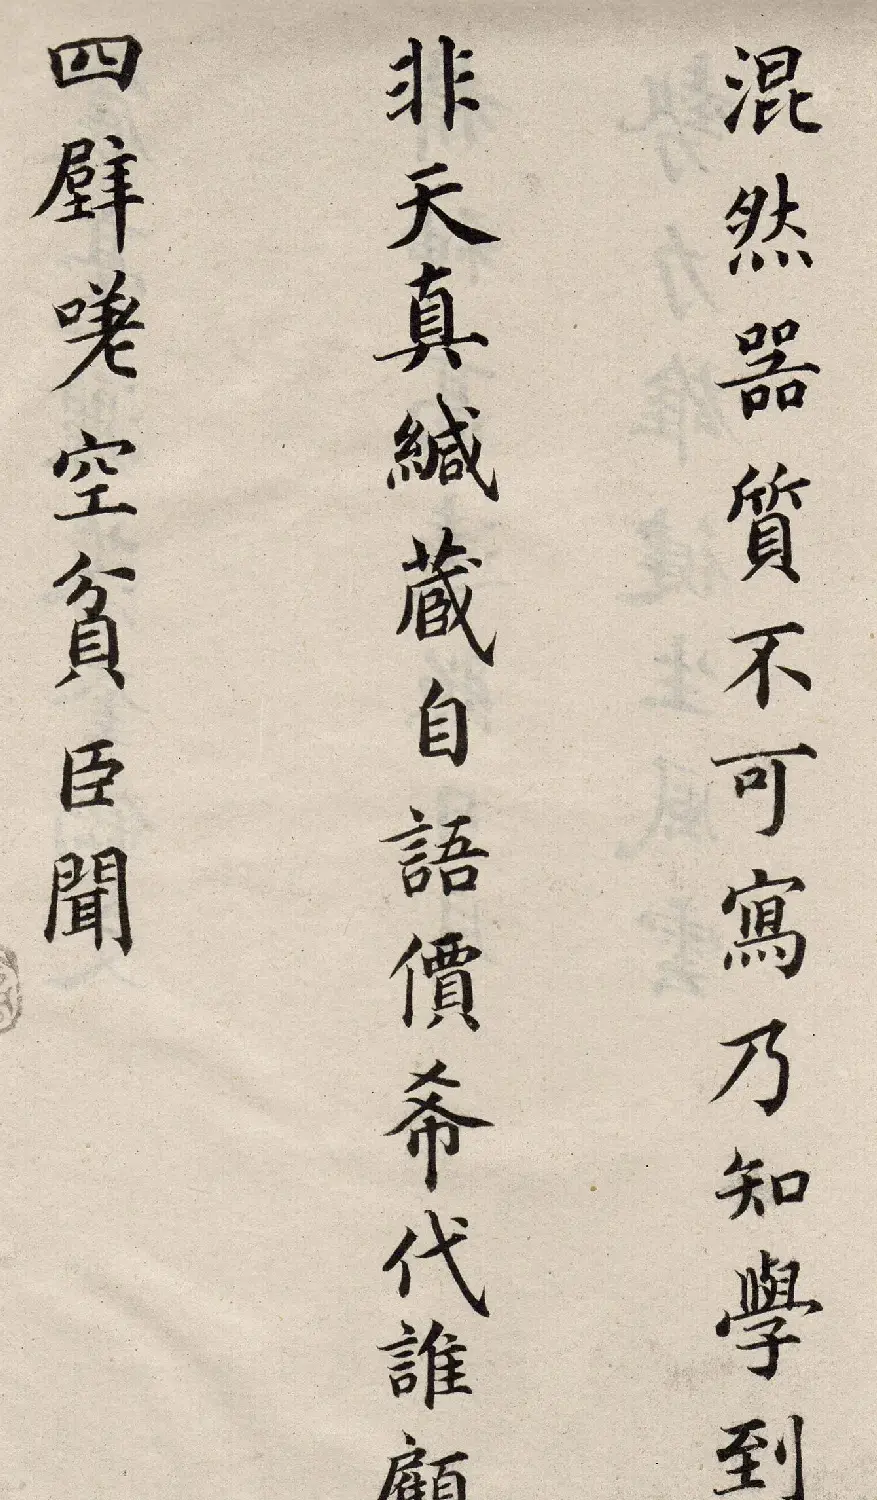 混然器質不可寫乃知學到
非天真緘蔵自語價希代誰顧
四壁嘆空貧臣聞